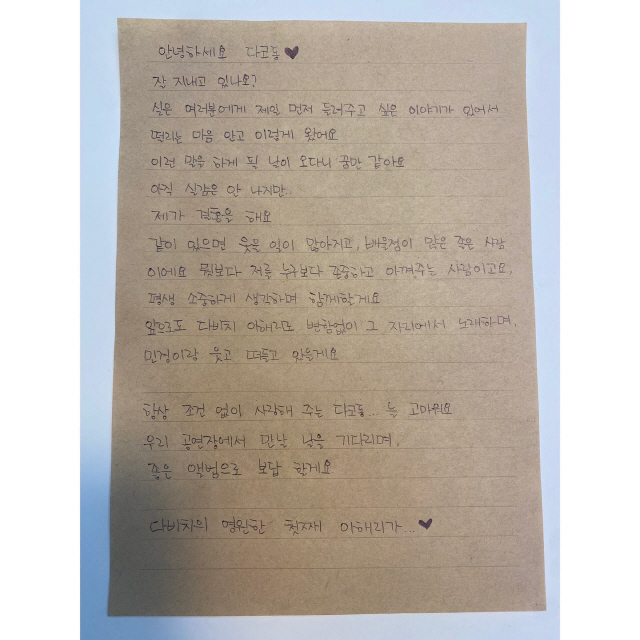 안녕하세요 다코동♥
잘 지내고 있나요?
실은 여러분에게 제일 먼저 들려주고 싶은 이야기가 있어서
떨리는 마음 안고 이렇게 왔어요
이런 말을 하게 될 날이 오다니 꿈만 같아요
아직 실감은 안 나지만..
제가 결혼을 해요
같이 있으면 웃을 일이 많아지고, 배울점이 많은 좋은 사람
이에요 뭣보다 저를 누구보다 존중하고 아껴주는 사람이고요,
평생 소중하게 생각하며 함께할게요
앞으로도 다비치 이해리도 변함없이 그 자리에서 노래하며,
민경이랑 웃고 떠들고 있을게요
항상 조건 없이 사랑해 주는 다코동.. 늘 고마워요
우리 공연장에서 만날 날을 기다리며,
좋은 앨범으로 보답 할게요
다비치의 영원한 첫째 이해리가...♥